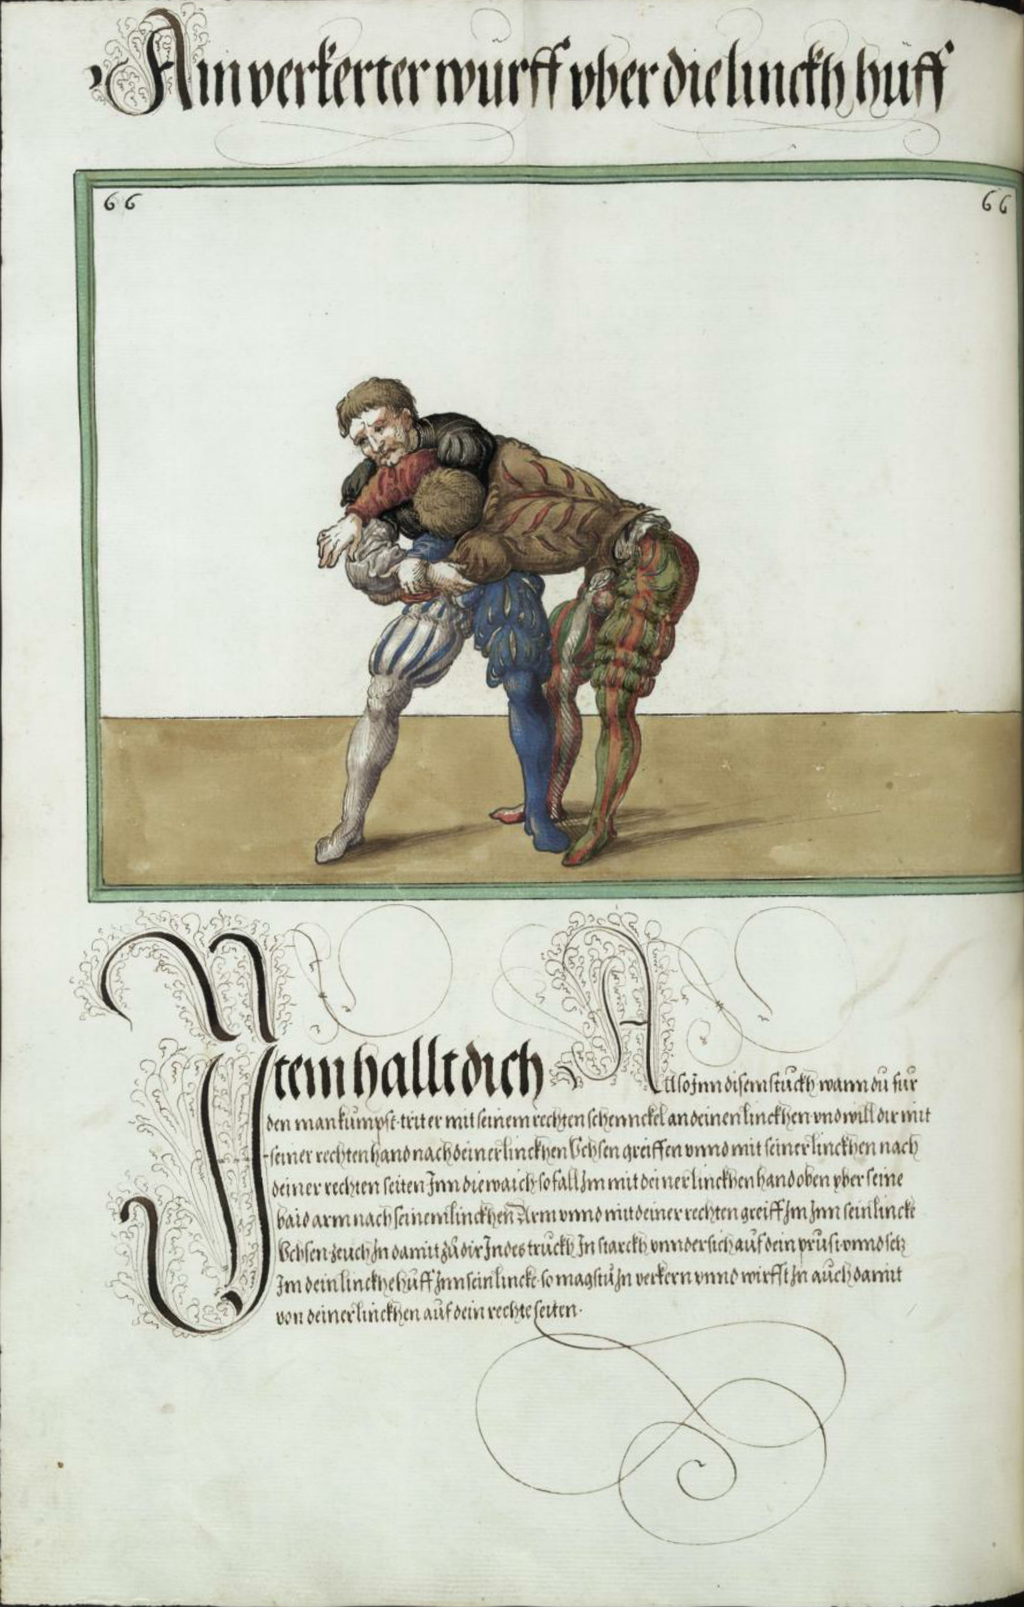 Ain verkerter wurff vber die linckh huff
66 66
Ytem hallt dich Also Jnn disem stuckh wann du fur
den man kumpst trit er mit seinem rechten schennckel an deinen linckhen vnd will dir mit
seiner rechten hand nach deiner linckhen Vchsen greiffen vnnd mit seiner linckhen nach
deiner rechten seiten Jnn die waich so fall Jm mit deiner linckhen hand oben vber seine
baid arm nach seinem linckhen Arm vnnd mit deiner rechten greiff Jm Jnn sein linckh
Vchsen zeuch Jn damit zu dir Jndes truckh Jn starckh vnndersich auf dein prust vnnd setz
Jm dein linckhe huff Jnn sein lincke so magstu Jn verkern vnnd wirffst Jn auch damit
von deiner linckhen auf dein rechte seiten.